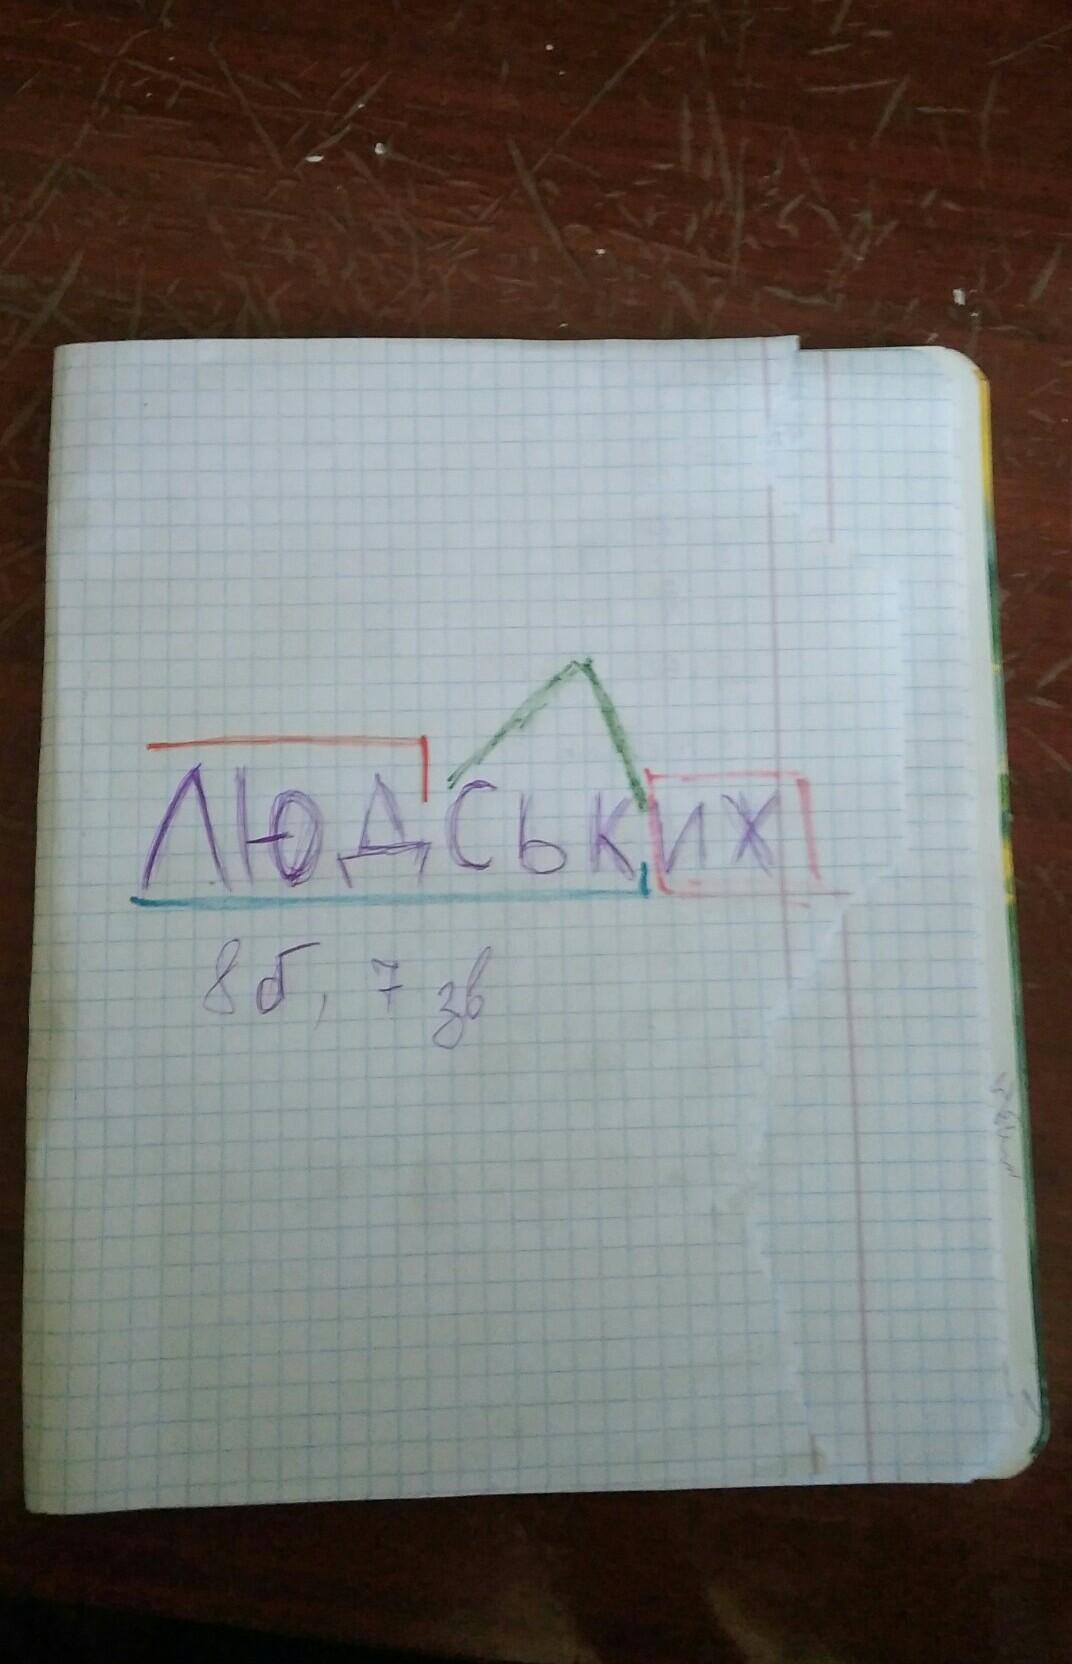 ЛЮДСЬКИХ
8 б, 7 зв